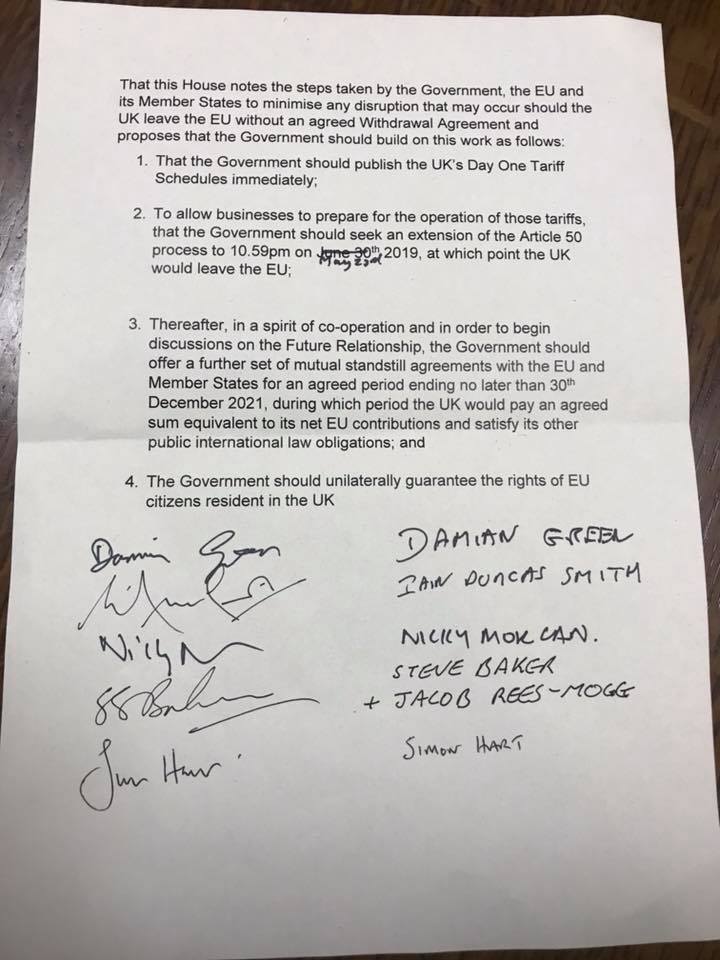 That this House notes the steps taken by the Government, the EU and
its Member States to minimise any disruption that may occur should the
UK leave the EU without an agreed Withdrawal Agreement and
proposes that the Government should build on this work as follows:
1. That the Government should publish the UK's Day One Tariff
Schedules immediately;
2. To allow businesses to prepare for the operation of those tariffs,
that the Government should seek an extension of the Article 50
process to 10.59pm on June 30th 2019, at which point the UK
May 23rd
would leave the EU;
3. Thereafter, in a spirit of co-operation and in order to begin
discussions on the Future Relationship, the Government should
offer a further set of mutual standstill agreements with the EU and
Member States for an agreed period ending no later than 30th
December 2021, during which period the UK would pay an agreed
sum equivalent to its net EU contributions and satisfy its other
public international law obligations; and
4. The Government should unilaterally guarantee the rights of EU
citizens resident in the UK
Damian Green DAMIAN GREEN
IAIN DUNCAN SMITH
Nicky M NICKY MORGAN.
STEVE BAKER
SSBaker + JACOB REES-MOGG
SIMON HART